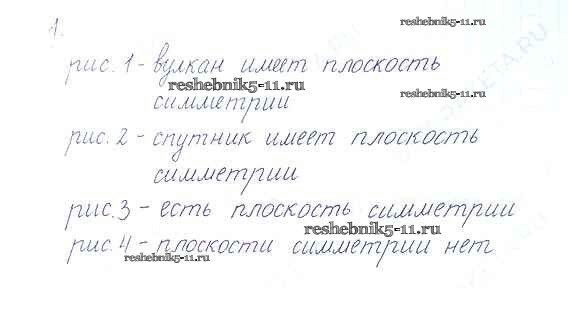 1.
reshebnik5-11.ru
рис. 1 - вулкан имеет плоскость
reshebnik5-11.ru
reshebnik5-11.ru
симметрии
рис. 2 - спутник имеет плоскость
симметрии
рис. 3 - есть плоскость симметрии
reshebnik5-11.ru
рис. 4 - плоскости симметрии нет
reshebnik5-11.ru